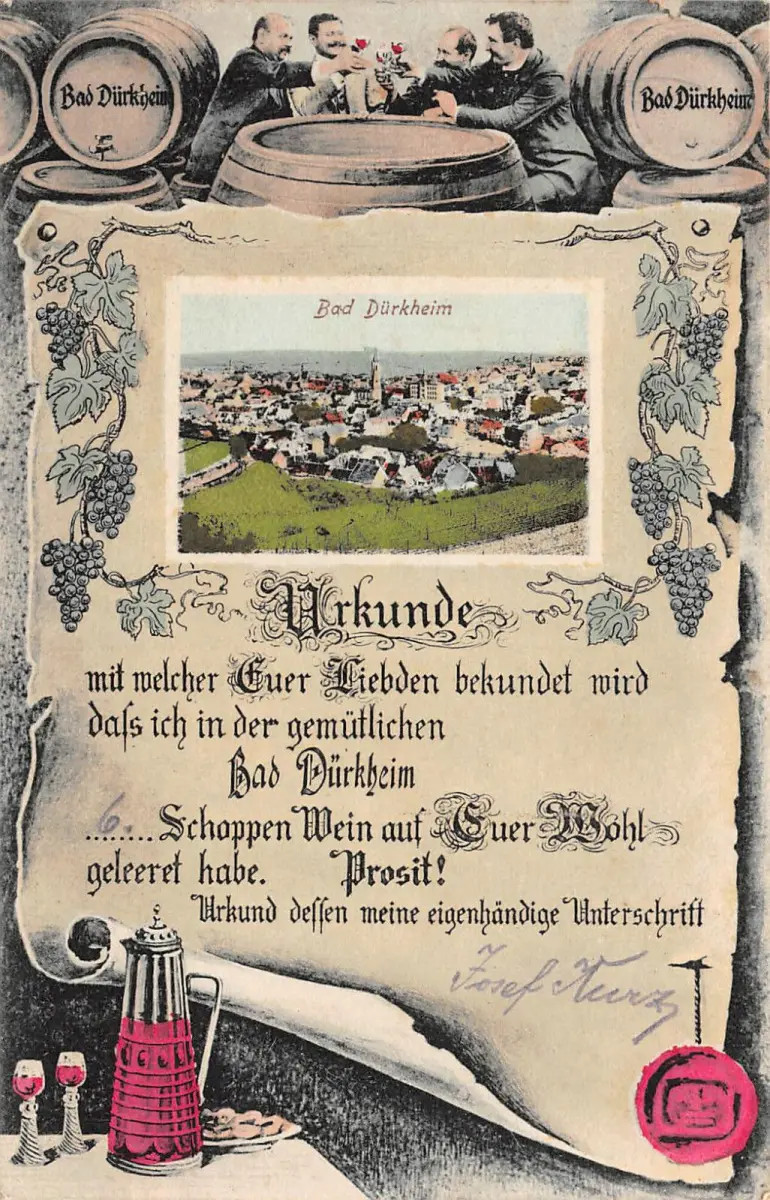 Bad Dürkheim
Bad Dürkheim
Bad Dürkheim
Urkunde
mit welcher Euer Liebden bekundet wird
daſs ich in der gemütlichen
Bad Dürkheim
6. ........ Schoppen Wein auf Euer Wohl
geleeret habe. Prosit!
Urkund deſſen meine eigenhändige Unterschrift
Josef Kurz